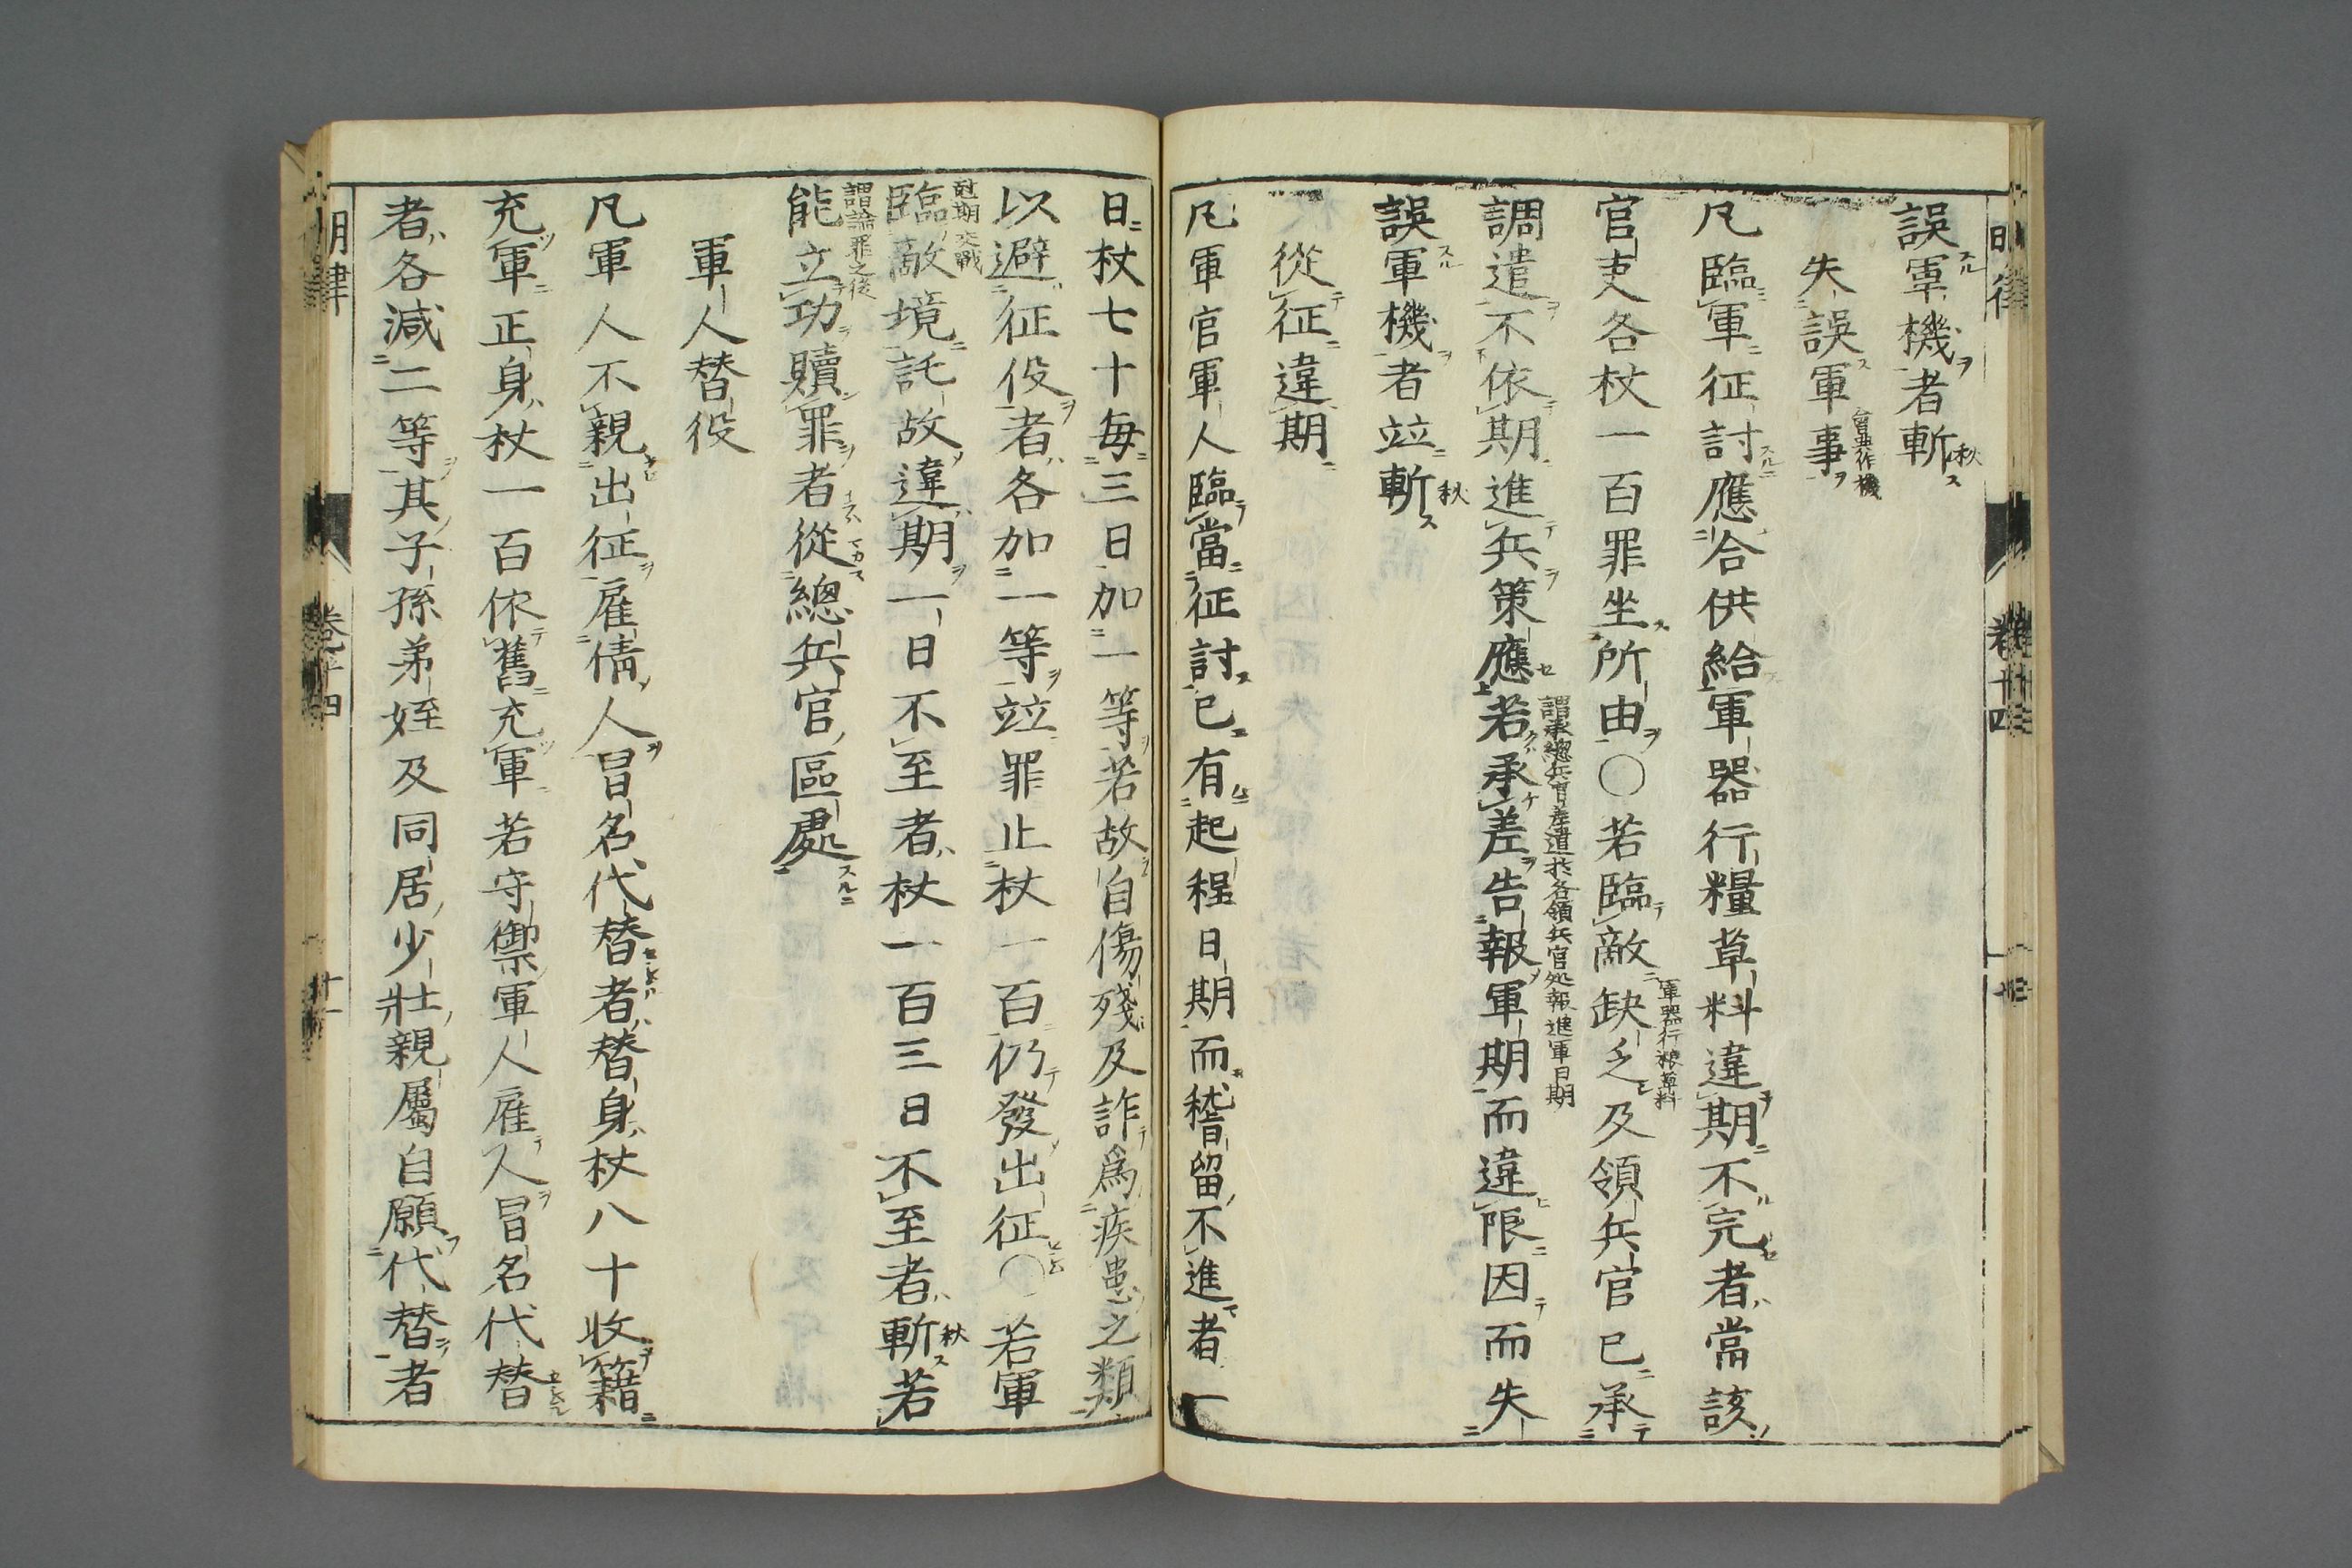 誤軍機者斬秋
失誤軍事會典作機
凡臨軍征討應合供給軍器行糧草料違期不完者當該
官吏各杖一百罪坐所由〇若臨敵缺乏軍器行粮草料及領兵官已承
調遣不依期進兵策應若承差告報軍期謂承總兵官差遣於各領兵官処報進軍日期而違限因而失
誤軍機者竝斬秋
從征違期
凡軍官軍人臨當征討已有起程日期而稽留不進者一
日杖七十每三日加一等若故自傷殘及詐爲疾患之類
以避征役者各加一等竝罪止杖一百仍發出征〇若軍
臨敵境尅期交戰託故違期一日不至者杖一百三日不至者斬秋若
能立功謂論罪之後贖罪者從總兵官區處
軍人替役
凡軍人不親出征雇倩人冒名代替者替身杖八十收籍
充軍正身杖一百依舊充軍若守禦軍人雇人冒名代替
者各減二等其子孫弟姪及同居少壯親屬自願代替者
明律
卷十四
十一